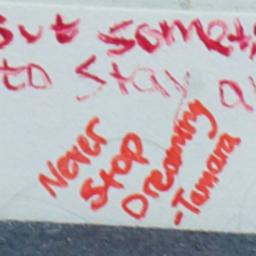 but someti
to stay a
Never
Stop
Dreaming
-Tamara